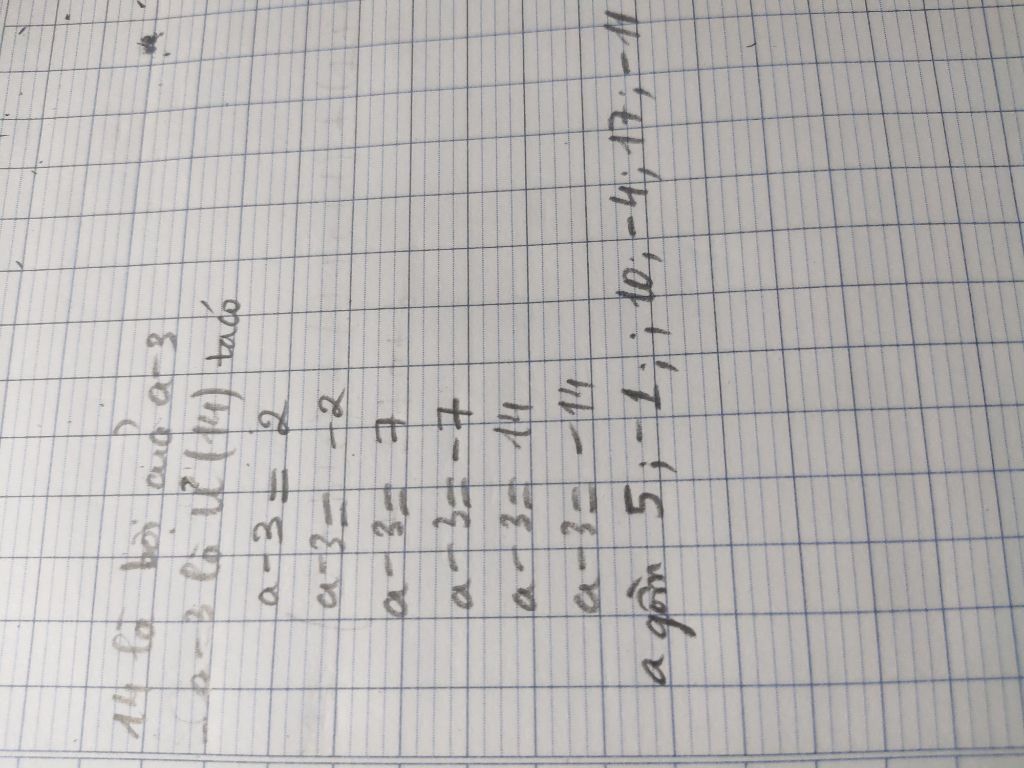 14 là bội của a-3
a-3 là Ư(14) ta có
a-3= 2
a-3= -2
a-3= 7
a-3= -7
a-3= 14
a-3= -14
a gồm 5; -1; ; 10; -4; 17; -11